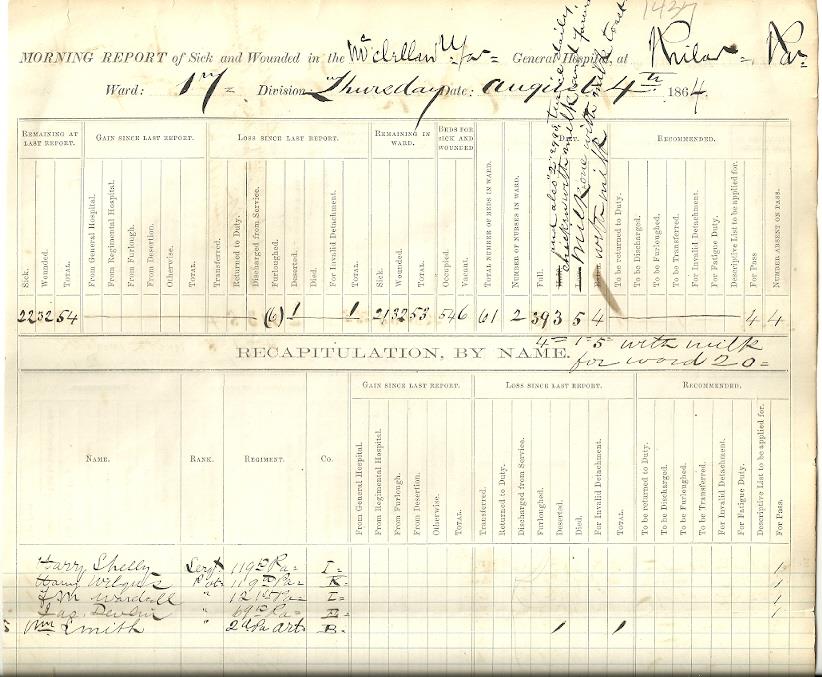 1427
MORNING REPORT of Sick and Wounded in the McClellan U.S. General Hospital, at Philae. Pa.
Ward: 17 Division: Thursday Date: August 4th 1864.
and also "2" eggs, twice daily,
chicken with milk
milk one with milk toast
with milk
REMAINING AT LAST REPORT. GAIN SINCE LAST REPORT. LOSS SINCE LAST REPORT. REMAINING IN WARD. BEDS FOR SICK AND WOUNDED DIET. RECOMMENDED.
Sick. Wounded. TOTAL. From General Hospital. From Regimental Hospital. From Furlough. From Desertion. Otherwise. TOTAL. Transferred. Returned to Duty. Discharged from Service. Furloughed. Deserted. Died. For Invalid Detachment. TOTAL. Sick. Wounded. TOTAL. Occupied. Vacant. TOTAL NUMBER OF BEDS IN WARD. NUMBER OF NURSES IN WARD. Full. To be returned to Duty. To be Discharged. To be Furloughed. To be Transferred. For Invalid Detachment. For Fatigue Duty. Descriptive List to be applied for. For Pass NUMBER ABSENT ON PASS.
22 32 54 (6) 1 1 21 32 53 54 6 61 2 39 3 5 4 4 4
4 = 1 = 5 = with milk
for ward 20 =
RECAPITULATION, BY NAME.
GAIN SINCE LAST REPORT. LOSS SINCE LAST REPORT. RECOMMENDED.
NAME. RANK. REGIMENT. Co. From General Hospital. From Regimental Hospital. From Furlough. From Desertion. Otherwise. TOTAL. Transferred. Returned to Duty. Discharged from Service. Furloughed. Deserted. Died. For Invalid Detachment. TOTAL. To be returned to Duty. To be Discharged. To be Furloughed. To be Transferred. For Invalid Detachment. For Fatigue Duty. Descriptive List to be applied for. For Pass.
Harry Shelly Sergt 119th Pa I 1
Harry Wilgus Pvt 119th Pa K 1
J M Wardell " 121st Pa I 1
Jas Devlin " 69th Pa E 1
5 Wm Smith " 2d Pa Art B 1 1